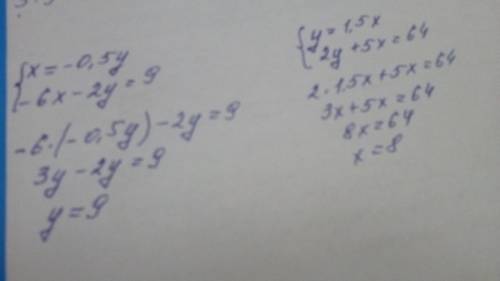 x = -0,5y
-6x - 2y = 9
-6·(-0,5y) - 2y = 9
3y - 2y = 9
y = 9
y = 1,5x
2y + 5x = 64
2·1,5x + 5x = 64
3x + 5x = 64
8x = 64
x = 8